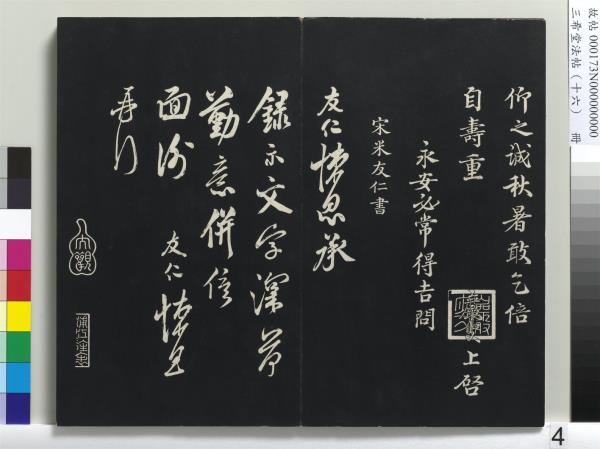 仰之誠秋暑敢乞倍
自壽重
永安必常得吉問
上啓
宋米友仁書
友仁悚息承
錄示文字深荷
勤意併俟
面謝
友仁悚息
再行
故帖 000173N000000000
三希堂法帖(十六) 冊
4